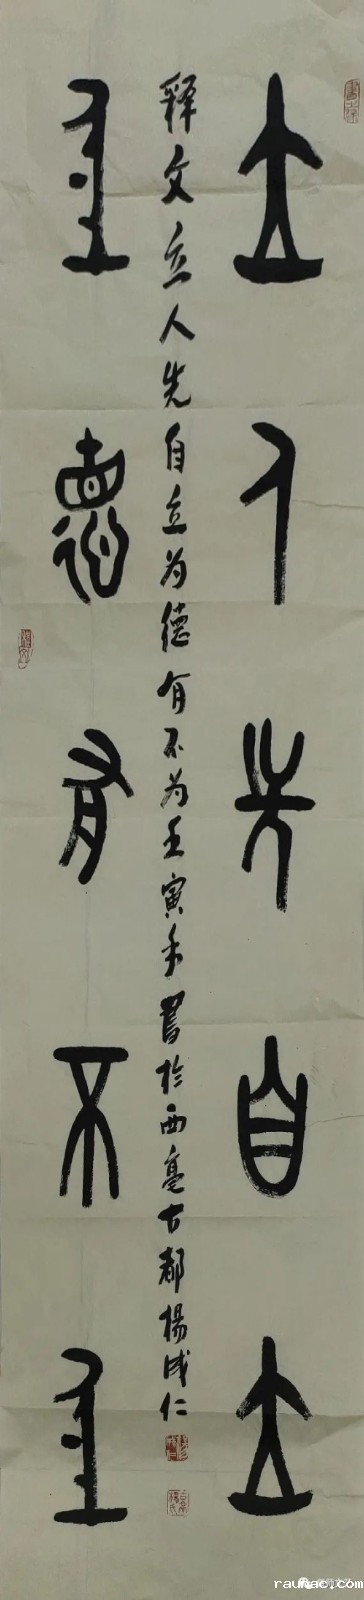 立人先自立
释文立人先自立为德有不为壬寅年書於西亳古都楊成仁
为德有不为